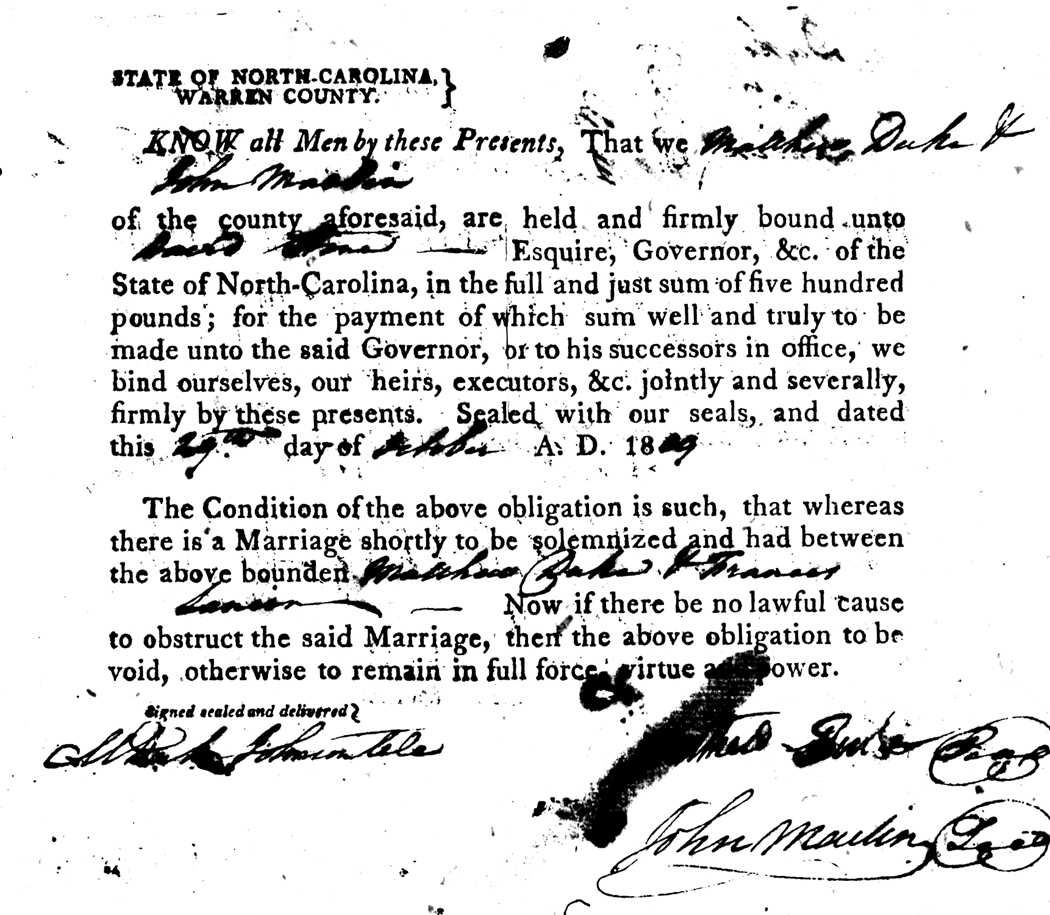 STATE OF NORTH-CAROLINA, }
WARREN COUNTY.
KNOW all Men by these Presents, That we Matthew Duke &
John Maclin
of the county aforesaid, are held and firmly bound unto
David Stone — Esquire, Governor, &c. of the
State of North-Carolina, in the full and just sum of five hundred
pounds; for the payment of which sum well and truly to be
made unto the said Governor, or to his successors in office, we
bind ourselves, our heirs, executors, &c. jointly and severally,
firmly by these presents. Sealed with our seals, and dated
this 29th day of October A. D. 1809
The Condition of the above obligation is such, that whereas
there is a Marriage shortly to be solemnized and had between
the above bounden Matthew Duke & Frances
— Now if there be no lawful cause
to obstruct the said Marriage, then the above obligation to be
void, otherwise to remain in full force, virtue and power.
Signed sealed and delivered }
Johnson
Duke Seal
John Maclin Seal